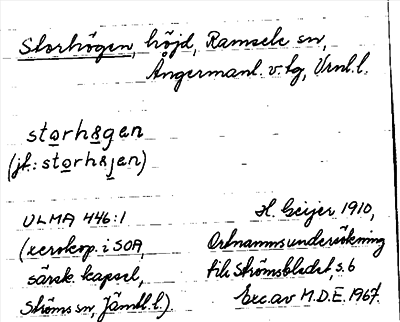 Storhögen, höjd, Ramsele sn,
Ångermanl. v. tg, Vrnl. l.
storhøgen
(jf.: storhøjen)
ULMA 446:1
(xerokop. i SOA,
särsk. kapsel,
Ströms sn, Jämtl. l.)
H. Geijer 1910,
Ortnamnsundersökning
till Strömsbladet, s. 6
Exc. av M.D.E. 1967.